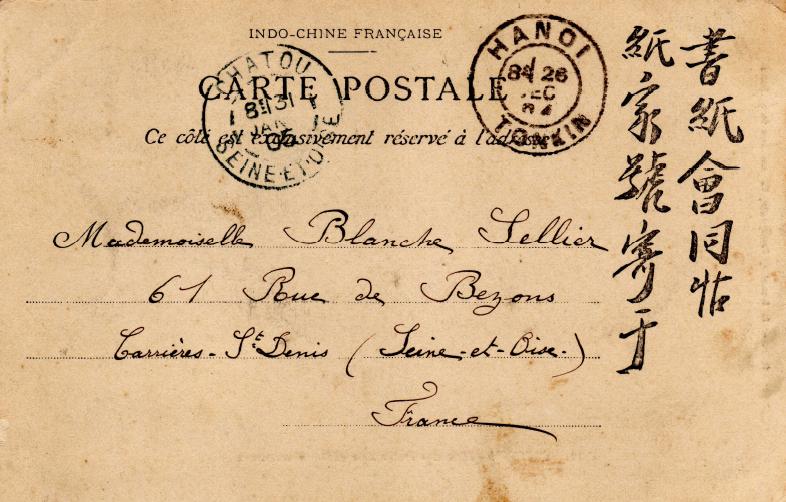 INDO-CHINE FRANÇAISE
CARTE POSTALE
Ce côté est exclusivement réservé à l'adresse
CHATOU
8E 31
JAN
05
SEINE-ET-OISE
HANOI
8E 26
DEC
04
TONKIN
Mademoiselle Blanche Sellier
61 Rue de Bezons
Carrières-St Denis (Seine-et-Oise-)
France
書紙會同帖
紙家號寄于